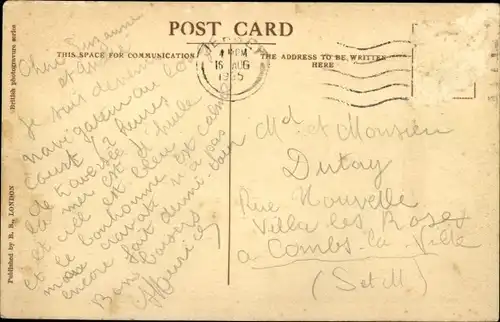 POST CARD
THIS SPACE FOR COMMUNICATION
THE ADDRESS TO BE WRITTEN
HERE
JERSEY
4 PM
16 AUG
1935
British photogravure series
Published by R. R., LONDON
Chère Suzanne
et
Je suis devenu
navigateur au long
court 2 heures
de traversée
la mer est d'huile
et ciel est bleu
et le bonhomme est calme
ma cravate n'a pas
encore fait demi-tour
Bons baisers
Maurice
Md et Monsieur
Dutay
Rue Nouvelle
Villa les Roses
a Combs la Ville
(S et M)